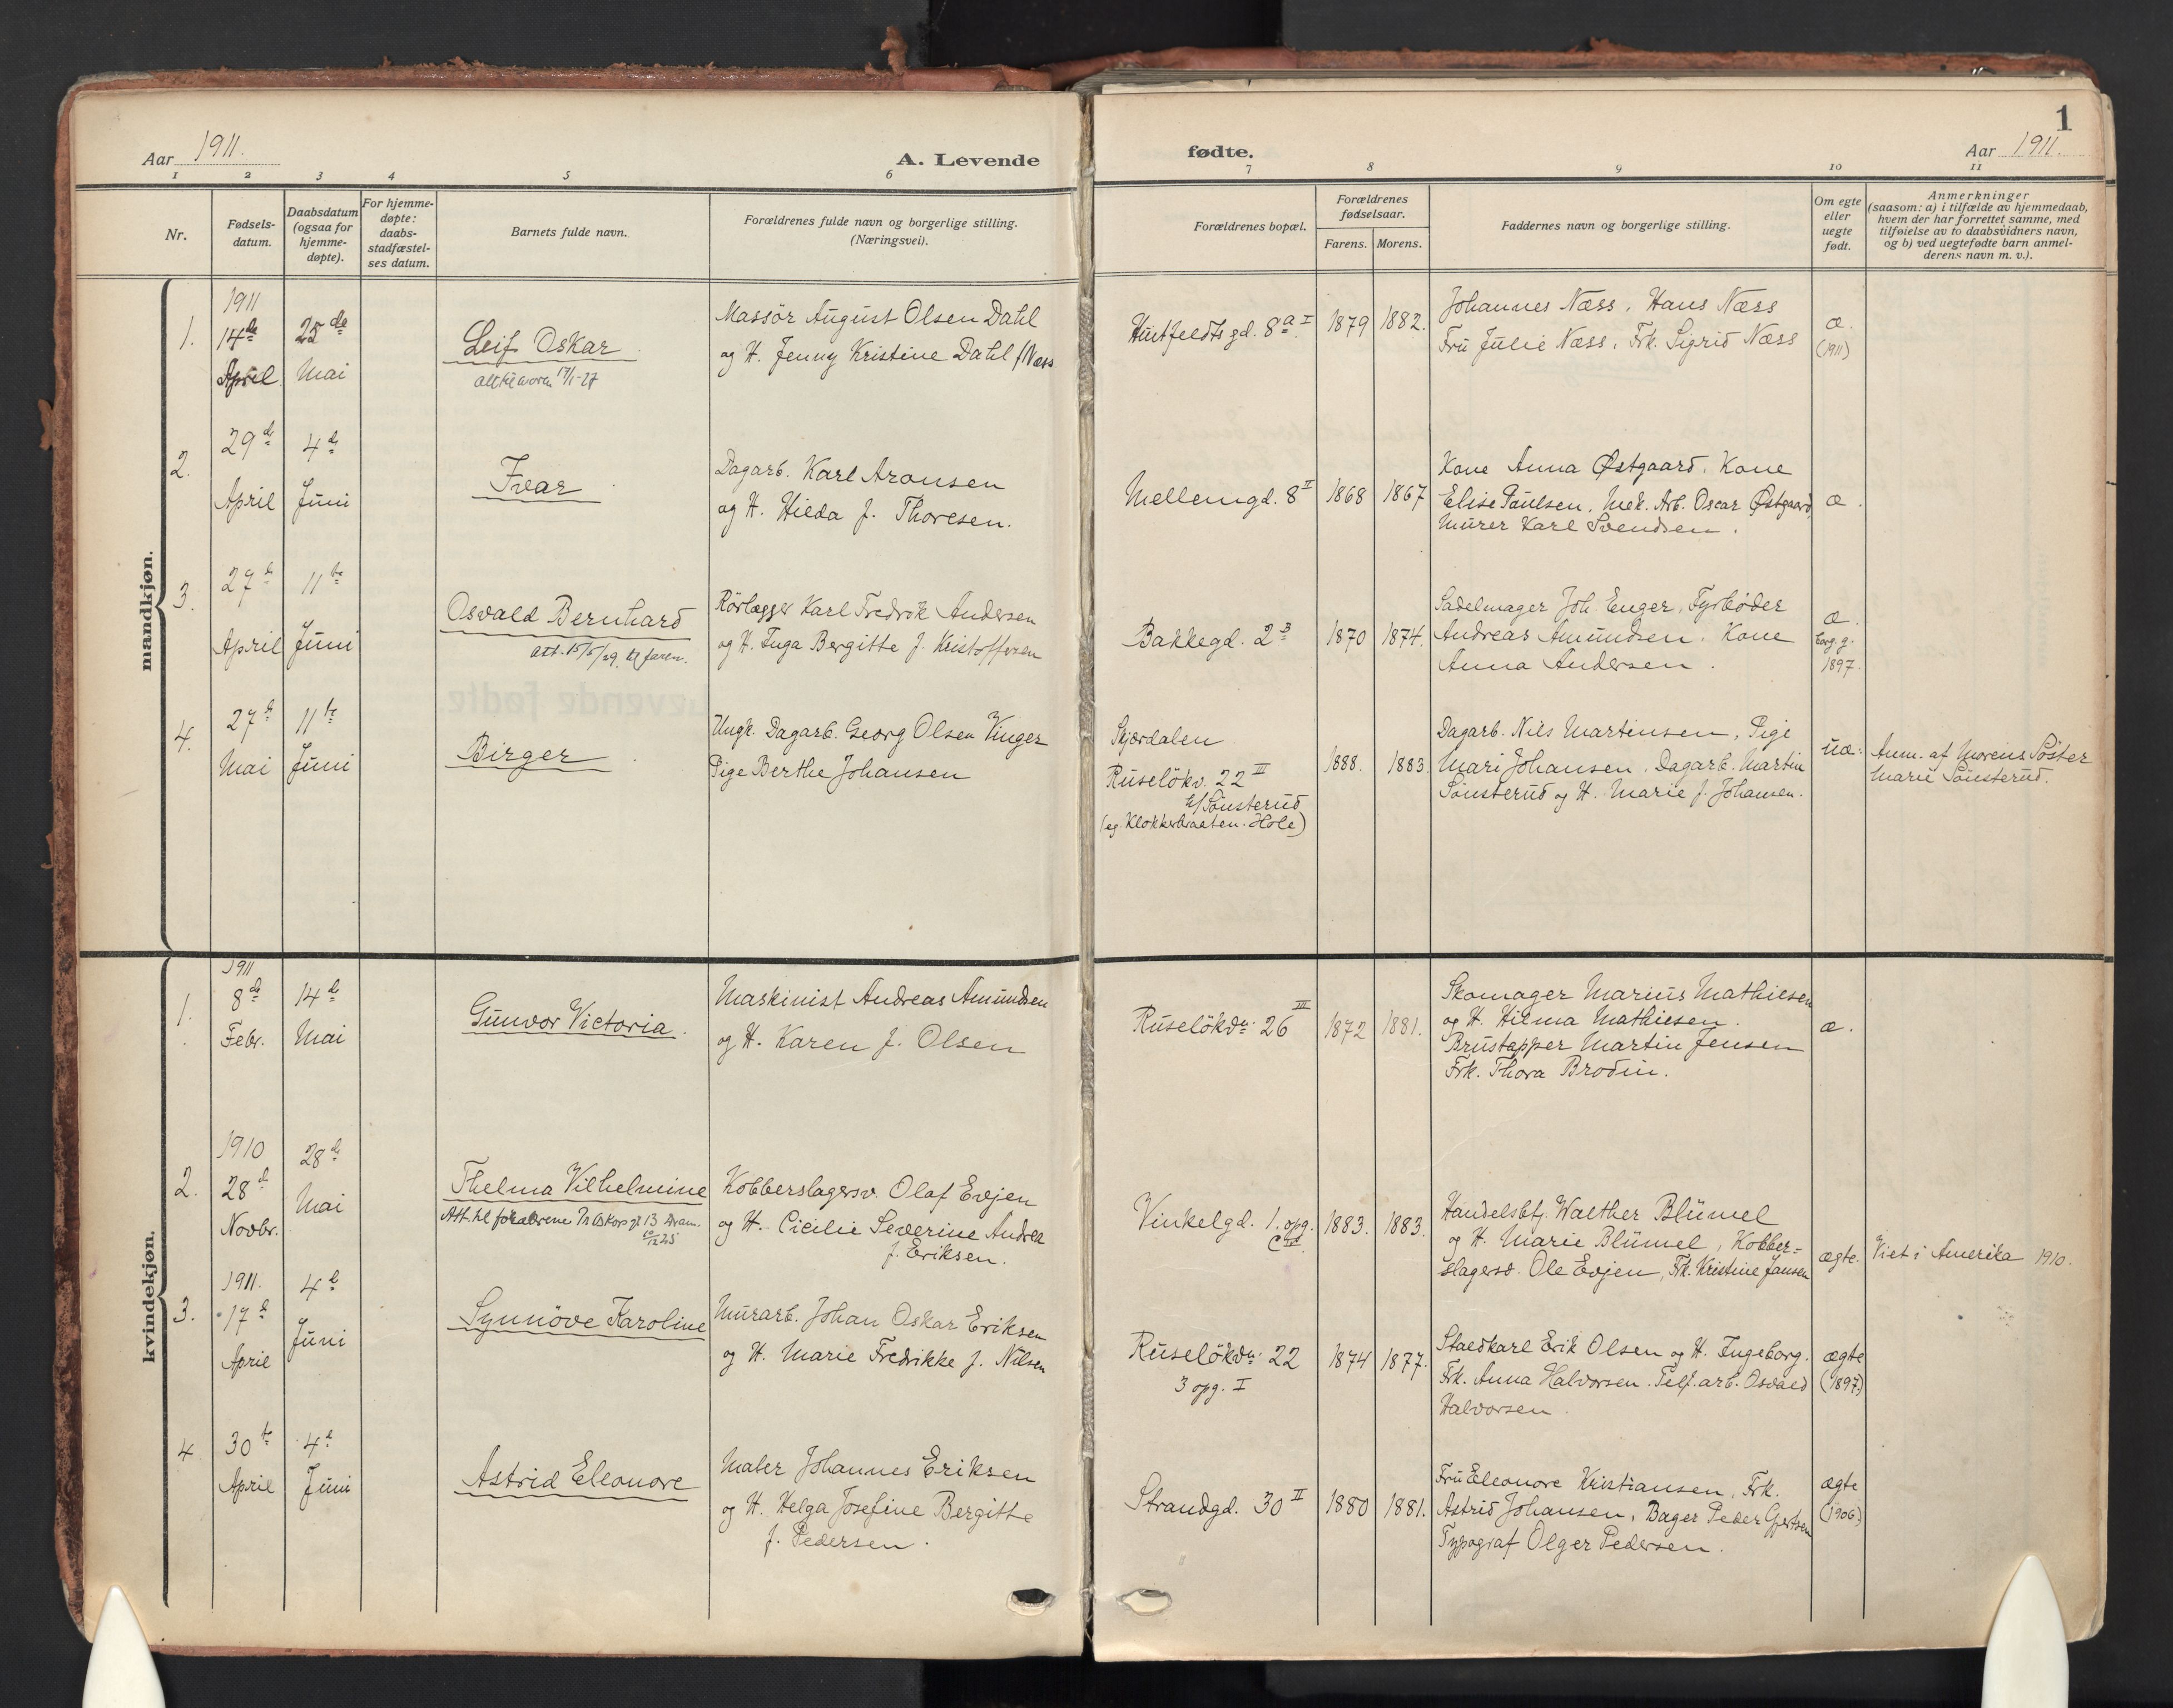 Aar 1911.
A. Levende
1 2 3 4 5 6
Nr.
Fødsels-
datum.
Daabsdatum
(ogsaa for
hjemme-
døpte).
For hjemme-
døpte:
daabs-
stadfæstel-
ses datum.
Barnets fulde navn.
Forældrenes fulde navn og borgerlige stilling.
(Næringsvei).
mandkjøn.
1.
1911
14de
April
25de
Mai
Leif Oskar
17/1-27
Massör August Olsen Dahl
og H. Jenny Kristine Dahl f Næss
2.
29de
April
4de
Juni
Ivar
Dagarb. Karl Aronsen
og H. Hilda f. Thoresen.
3.
27de
April
11te
Juni
Osvald Bernhard
att. 15/5/29, til faren.
Rörlægger Karl Fredrik Andersen
og H. Inga Bergitte f. Kristoffersen
4.
27de
Mai
11te
Juni
Birger
Ungk. Dagarb. Georg Olsen Vinger
Pige Berthe Johansen
kvindekjøn.
1.
1911
8de
Febr.
14de
Mai
Gunvor Victoria.
Maskinist Andreas Amundsen
og H. Karen f. Olsen
2.
1910
28de
Novbr.
28de
Mai
Thelma Vilhelmine
Att. til forældrene 13 Dram.
Kobberslagersv. Olaf Evjen
og H. Cicilie Severine Andrea
f. Eriksen.
3.
1911.
17de
April
4de
Juni
Synnöve Karoline
Murarb. Johan Oskar Eriksen
og H. Marie Fredrikke f. Nilsen
4
30te
April
4de
Juni
Astrid Eleonore
Maler Johannes Eriksen
og H. Helga Josefine Bergitte
f. Pedersen.
1
fødte.
Aar 1911.
7 8 9 10 11
Forældrenes bopæl.
Forældrenes
fødselsaar.
Farens. Morens.
Faddernes navn og borgerlige stilling.
Om egte
eller
uegte
født.
Anmerkninger
(saasom: a) i tilfælde av hjemmedaab,
hvem der har forrettet samme, med
tilføielse av to daabsvidners navn,
og b) ved uegtefødte barn anmel-
derens navn m. v.).
Huitfeldts gd. 8a I
1879 1882.
Johannes Næss, Hans Næss
Fru Julie Næss, Frk. Sigrid Næss
æ.
(1911)
Mellemgd. 8 II
1868 1867
Kone Anna Østgaard, Kone
Elise Paulsen, Mek. Arb. Oscar Østgaard,
Murer Karl Svendsen.
æ.
Bakkegd. 2 B
1870 1874.
Sadelmager Joh. Enger, Fyrbøder
Andreas Amundsen. Kone
Anna Andersen.
æ.
borg. g.
1897.
Skjærdalen
Ruselökv. 22 III
b/ Sönsterud
(eg. Klokkerbraaten. Hole)
1888. 1883
Dagarb. Nils Martinsen, Pige
Mari Johansen. Dagarb. Martin
Sönsterud og H. Marie f. Johansen.
uæ.
Anm. af Morens Söster
Marie Sönsterud.
Ruselökvn. 26 III
1872 1881.
Skomager Marius Mathiesen
og H. Hilma Mathiesen.
Brustapper Martin Jensen
Frk. Thora Brodin.
æ.
Vinkelgd. 1. opg.
C IV.
1883. 1883.
Handelsbtj. Walther Blümel
og H. Marie Blümel, Kobber-
slagersv. Ole Evjen, Frk. Kristine Jansen
ægte.
Viet i Amerika 1910.
Ruselökvn. 22
3 opg. I
1874 1877.
Staldkarl Erik Olsen og H. Ingeborg.
Frk. Anna Halvorsen. Telf. arb. Osvald
Halvorsen.
ægte
(1897)
Strandgd. 30 II
1880 1881.
Fru Eleonore Kristiansen, Frk.
Astrid Johansen, Bager Peder Gjertsen
Typograf Olger Pedersen.
ægte
(1906)